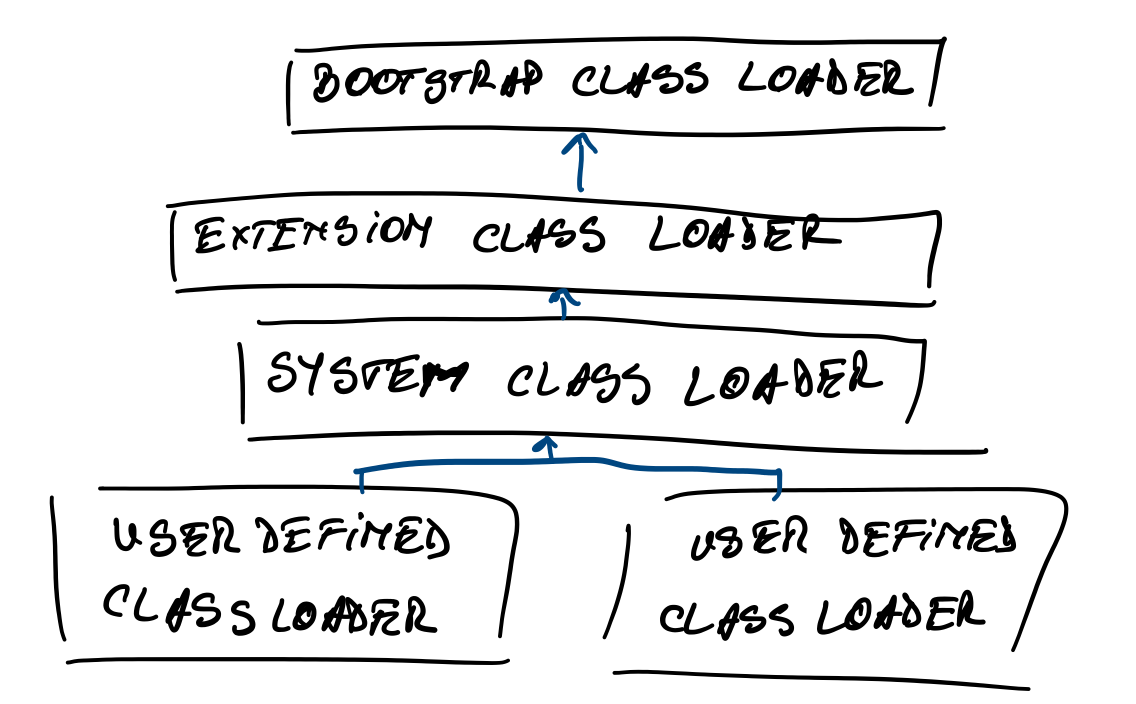 BOOTSTRAP CLASS LOADER
EXTENSiON CLASS LOADER
SYSTEM CLASS LOADER
USER DEFiNED
CLASS LOADER
USER DEFiNED
CLASS LOADER